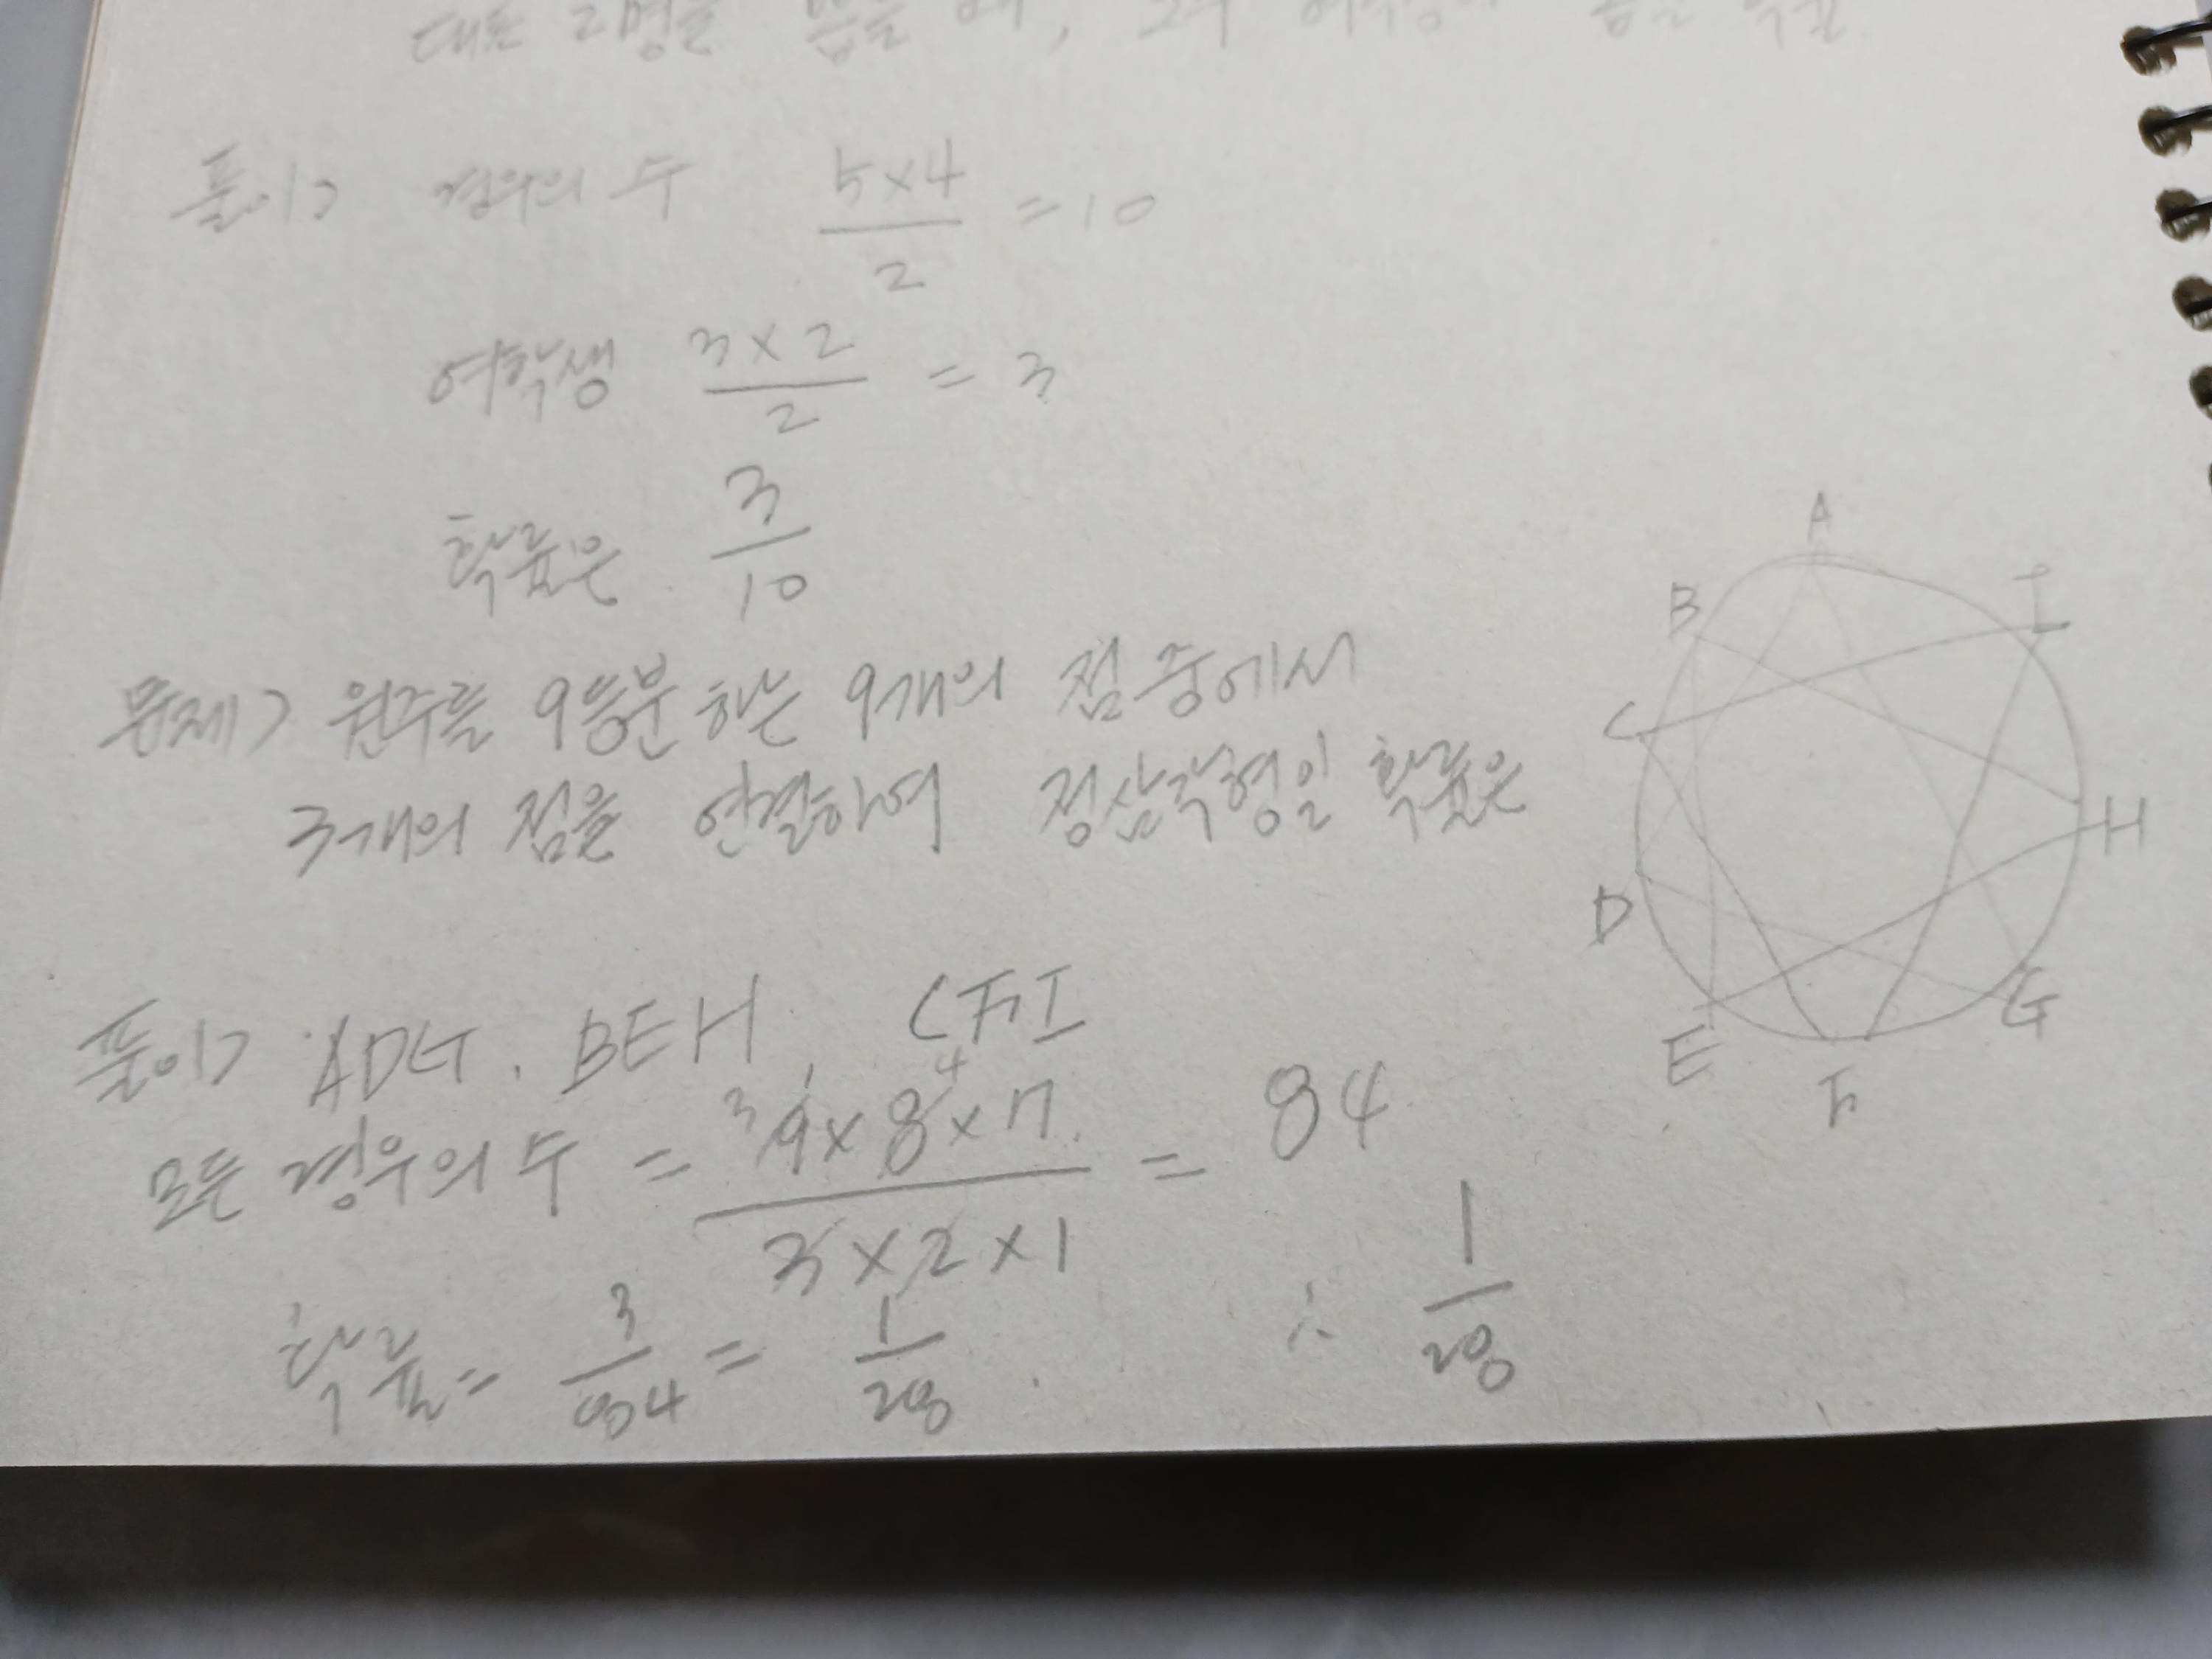 대표 2명을 뽑을 때, 2명
풀이> 경우의 수 5×4/2 = 10
여학생 3×2/2 = 3
확률은 3/10
문제> 원주를 9등분 하는 9개의 점 중에서
3개의 점을 연결하여 정삼각형일 확률은
A
B
I
C
H
D
G
E
F
풀이> ADG. BEH, CFI
모든 경우의 수 = 3 4 9×8×7/3×2×1 = 84
확률 = 3/84 = 1/28. ∴ 1/28